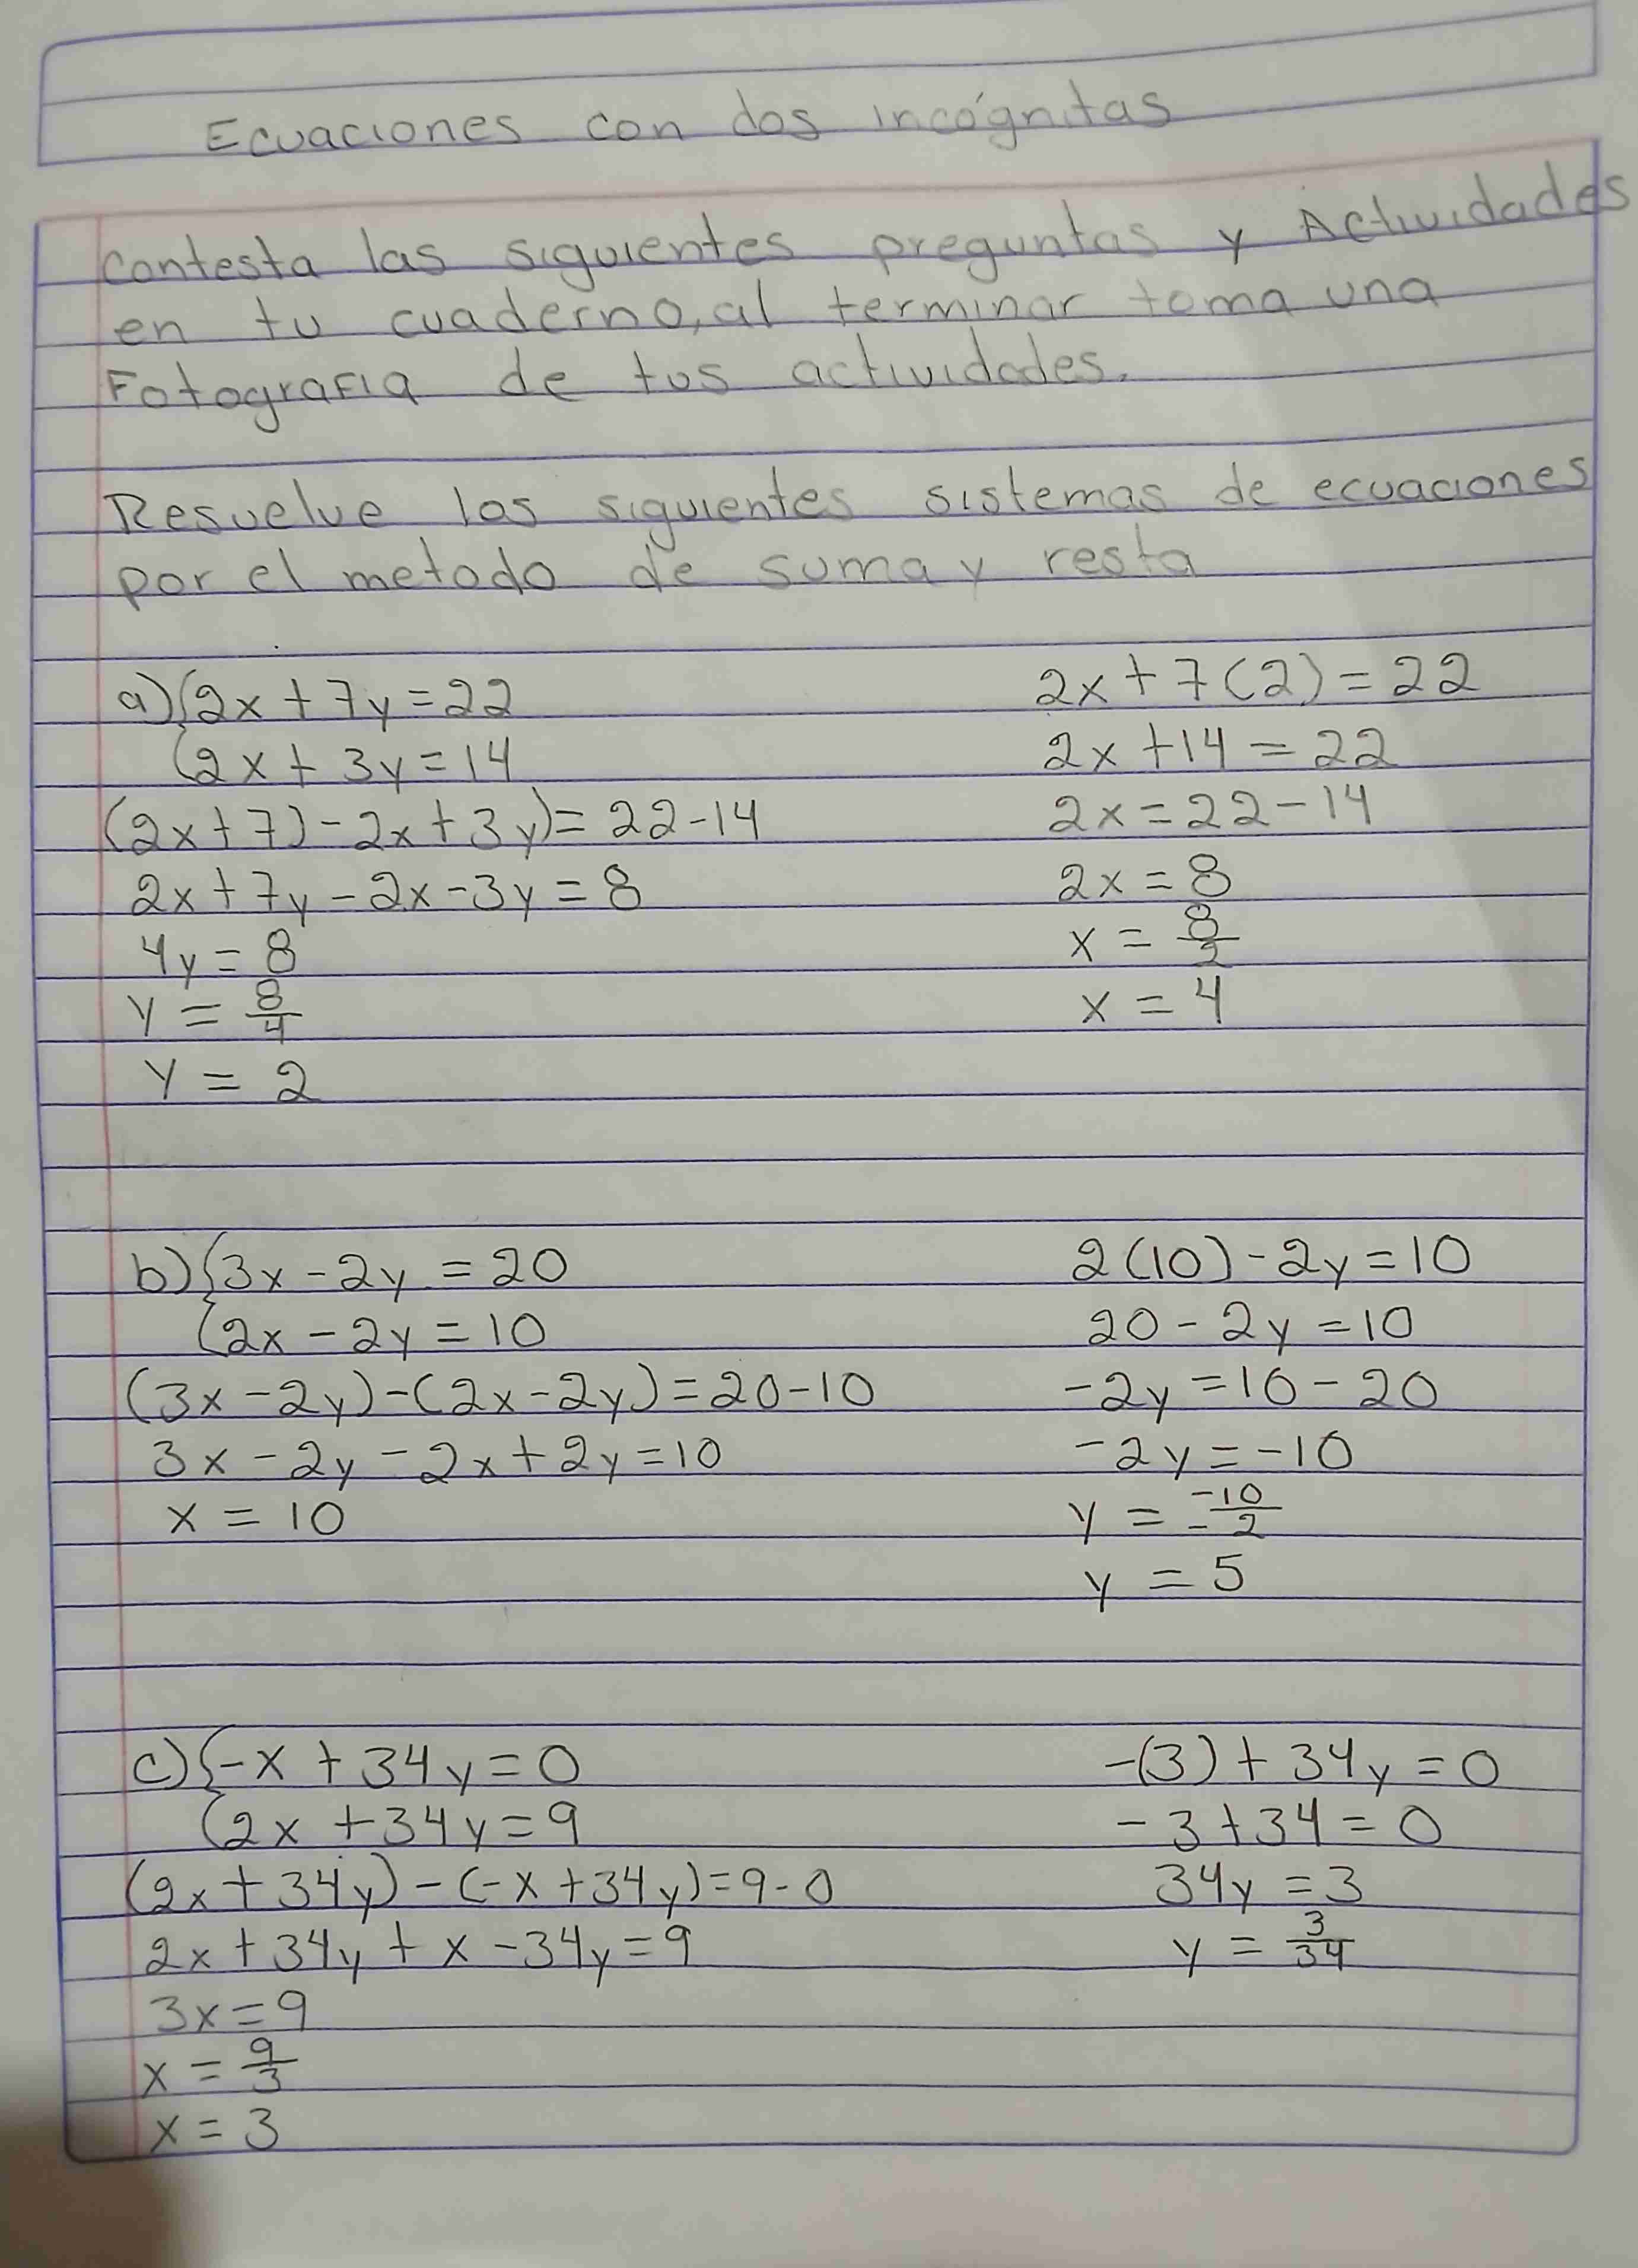 Ecuaciones con dos incógnitas
contesta las siguientes preguntas y Actividades
en tu cuaderno, al terminar toma una
Fotografia de tus actividades.
Resuelve los siguientes sistemas de ecuaciones
por el metodo de suma y resta
a) {2x + 7y = 22
{2x + 3y = 14
(2x + 7) - 2x + 3y) = 22 - 14
2x + 7y - 2x - 3y = 8
4y = 8
y = 8/4
y = 2
2x + 7(2) = 22
2x + 14 = 22
2x = 22 - 14
2x = 8
x = 8/2
x = 4
b) {3x - 2y = 20
{2x - 2y = 10
(3x - 2y) - (2x - 2y) = 20 - 10
3x - 2y - 2x + 2y = 10
x = 10
2(10) - 2y = 10
20 - 2y = 10
-2y = 10 - 20
-2y = -10
y = -10/-2
y = 5
c) {-x + 34y = 0
{2x + 34y = 9
(2x + 34y) - (-x + 34y) = 9 - 0
2x + 34y + x - 34y = 9
3x = 9
x = 9/3
x = 3
-(3) + 34y = 0
-3 + 34 = 0
34y = 3
y = 3/34